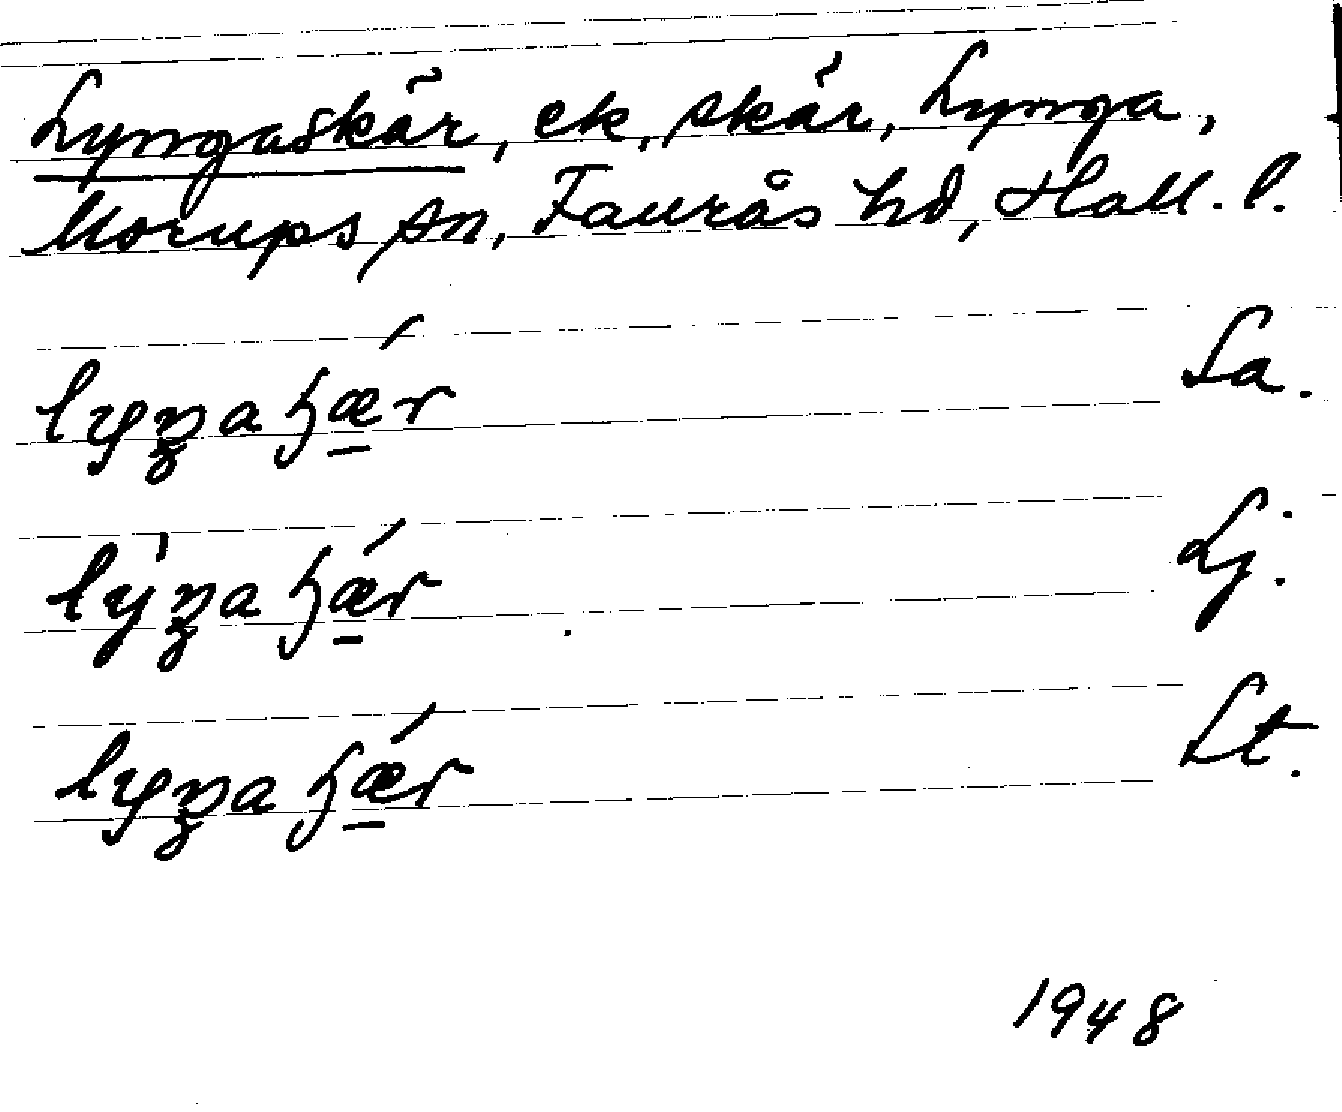 Lyngaskär, ek, skär, Lynga,
Morups sn, Faurås hd, Hall. l.
La.
Lj.
Lt.
1948